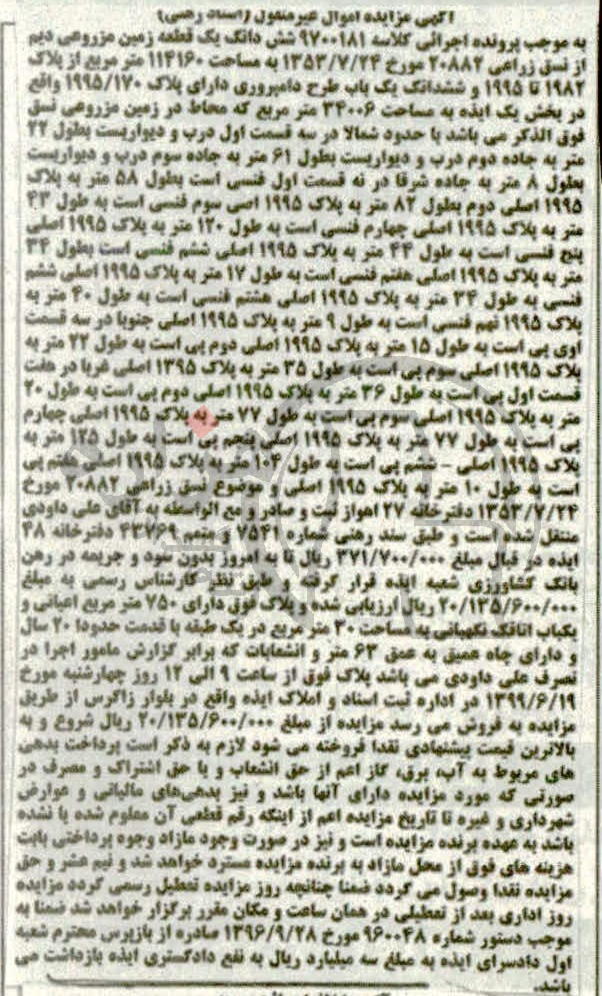 آگهی مزایده اموال غیرمنقول (اسناد رهنی)
به موجب پرونده اجرائی کلاسه ۹۷۰۰۱۸۱ شش دانگ یک قطعه زمین مزروعی دیم
از نسق زراعی ۲۰۸۸۲ مورخ ۱۳۵۳/۷/۲۴ به مساحت ۱۱۴۱۶۰ متر مربع از پلاک
۱۹۸۲ تا ۱۹۹۵ و ششدانگ یک باب طرح دامپروری دارای پلاک ۱۹۹۵/۱۷۰ واقع
در بخش یک ایذه به مساحت ۳۴۰۰۶ متر مربع که محاط در زمین مزروعی نسق
فوق الذکر می باشد با حدود شمالا در سه قسمت اول درب و دیواریست بطول ۲۲
متر به جاده دوم درب و دیواریست بطول ۶۱ متر به جاده سوم درب و دیواریست
بطول ۸ متر به جاده شرقا در نه قسمت اول فنسی است بطول ۵۸ متر به پلاک
۱۹۹۵ اصلی دوم بطول ۸۲ متر به پلاک ۱۹۹۵ اصی سوم فنسی است به طول ۴۳
متر به پلاک ۱۹۹۵ اصلی چهارم فنسی است به طول ۱۲۰ متر به پلاک ۱۹۹۵ اصلی
پنج فنسی است به طول ۴۴ متر به پلاک ۱۹۹۵ اصلی ششم فنسی است بطول ۳۴
متر به پلاک ۱۹۹۵ اصلی هفتم فنسی است به طول ۱۷ متر به پلاک ۱۹۹۵ اصلی ششم
فنسی به طول ۳۴ متر به پلاک ۱۹۹۵ اصلی هشتم فنسی است به طول ۴۰ متر به
پلاک ۱۹۹۵ نهم فنسی است به طول ۹ متر به پلاک ۱۹۹۵ اصلی جنوبا در سه قسمت
اوی پی است به طول ۱۵ متر به پلاک ۱۹۹۵ اصلی دوم پی است به طول ۲۲ متر به
پلاک ۱۹۹۵ اصلی سوم پی است به طول ۳۵ متر به پلاک ۱۳۹۵ اصلی غربا در هفت
قسمت اول پی است به طول ۳۶ متر به پلاک ۱۹۹۵ اصلی دوم پی است به طول ۲۰
متر به پلاک ۱۹۹۵ اصلی سوم پی است به طول ۷۷ متر به پلاک ۱۹۹۵ اصلی چهارم
پی است به طول ۷۷ متر به پلاک ۱۹۹۵ اصلی پنجم پی است به طول ۱۲۵ متر به
پلاک ۱۹۹۵ اصلی - ششم پی است به طول ۱۰۴ متر به پلاک ۱۹۹۵ اصلی هفتم پی
است به طول ۱۰ متر به پلاک ۱۹۹۵ اصلی و موضوع نسق زراعی ۲۰۸۸۲ مورخ
۱۳۵۳/۷/۲۴ دفترخانه ۲۷ اهواز ثبت و صادر و مع الواسطه به آقای علی داودی
منتقل شده است و طبق سند رهنی شماره ۷۵۴۱ و متمم ۴۳۷۶۹ دفترخانه ۴۸
ایذه در قبال مبلغ ۳۷۱/۷۰۰/۰۰۰ ریال تا به امروز بدون سود و جریمه در رهن
بانک کشاورزی شعبه ایذه قرار گرفته و طبق نظر کارشناس رسمی به مبلغ
۲۰/۱۳۵/۶۰۰/۰۰۰ ریال ارزیابی شده و پلاک فوق دارای ۷۵۰ متر مربع اعیانی و
یکباب اتاقک نگهبانی به مساحت ۳۰ متر مربع در یک طبقه با قدمت حدودا ۲۰ سال
و دارای چاه عمیق به عمق ۶۳ متر و انشعابات که برابر گزارش مامور اجرا در
تصرف علی داودی می باشد پلاک فوق از ساعت ۹ الی ۱۲ روز چهارشنبه مورخ
۱۳۹۹/۶/۱۹ در اداره ثبت اسناد و املاک ایذه واقع در بلوار زاگرس از طریق
مزایده به فروش می رسد مزایده از مبلغ ۲۰/۱۳۵/۶۰۰/۰۰۰ ریال شروع و به
بالاترین قیمت پیشنهادی نقدا فروخته می شود لازم به ذکر است پرداخت بدهی
های مربوط به آب، برق، گاز اعم از حق انشعاب و یا حق اشتراک و مصرف در
صورتی که مورد مزایده دارای آنها باشد و نیز بدهی‌های مالیاتی و عوارض
شهرداری و غیره تا تاریخ مزایده اعم از اینکه رقم قطعی آن معلوم شده یا نشده
باشد به عهده برنده مزایده است و نیز در صورت وجود مازاد وجوه پرداختی بابت
هزینه های فوق از محل مازاد به برنده مزایده مسترد خواهد شد و نیم عشر و حق
مزایده نقدا وصول می گردد ضمنا چنانچه روز مزایده تعطیل رسمی گردد مزایده
روز اداری بعد از تعطیلی در همان ساعت و مکان مقرر برگزار خواهد شد ضمنا به
موجب دستور شماره ۹۶۰۰۴۸ مورخ ۱۳۹۶/۹/۲۸ صادره از بازپرس محترم شعبه
اول دادسرای ایذه به مبلغ سه میلیارد ریال به نفع دادگستری ایذه بازداشت می
باشد.